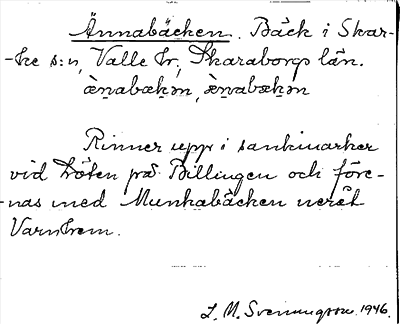 Ännabäcken. Bäck i Skar-
-ke s:n, Valle hr, Skaraborgs län.
Rinner upp i sankmarker
vid Höten på Billingen och före-
-nas med Munkabäcken neråt
Varnhem.
L. M. Svenungsson 1946.